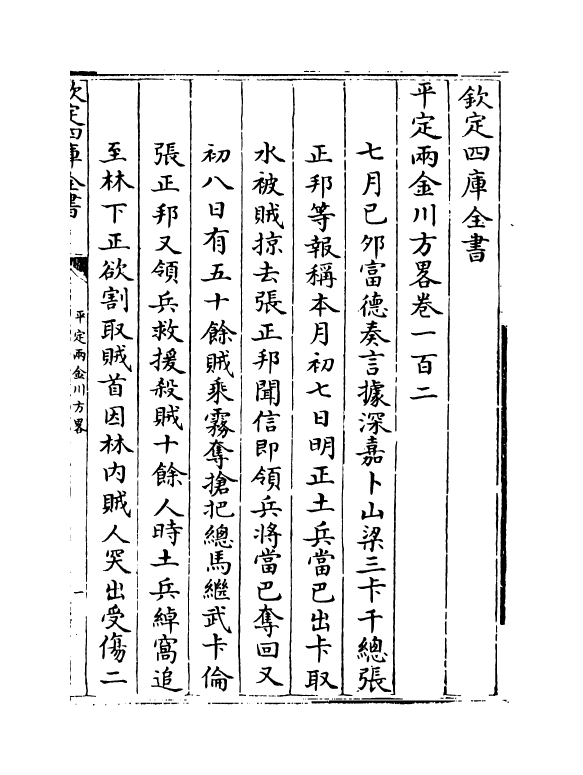 欽定四庫全書
平定兩金川方畧卷一百二
七月已夘富德奏言據深嘉卜山梁三卡千總張
正邦等報稱本月初七日明正土兵當巴出卡取
水被賊掠去張正邦聞信即領兵將當巴奪回又
初八日有五十餘賊乘霧奪搶把總馬繼武卡倫
張正邦又領兵救援殺賊十餘人時土兵綽窩追
至林下正欲割取賊首因林内賊人突出受傷二
欽定四庫全書
平定兩金川方畧
一